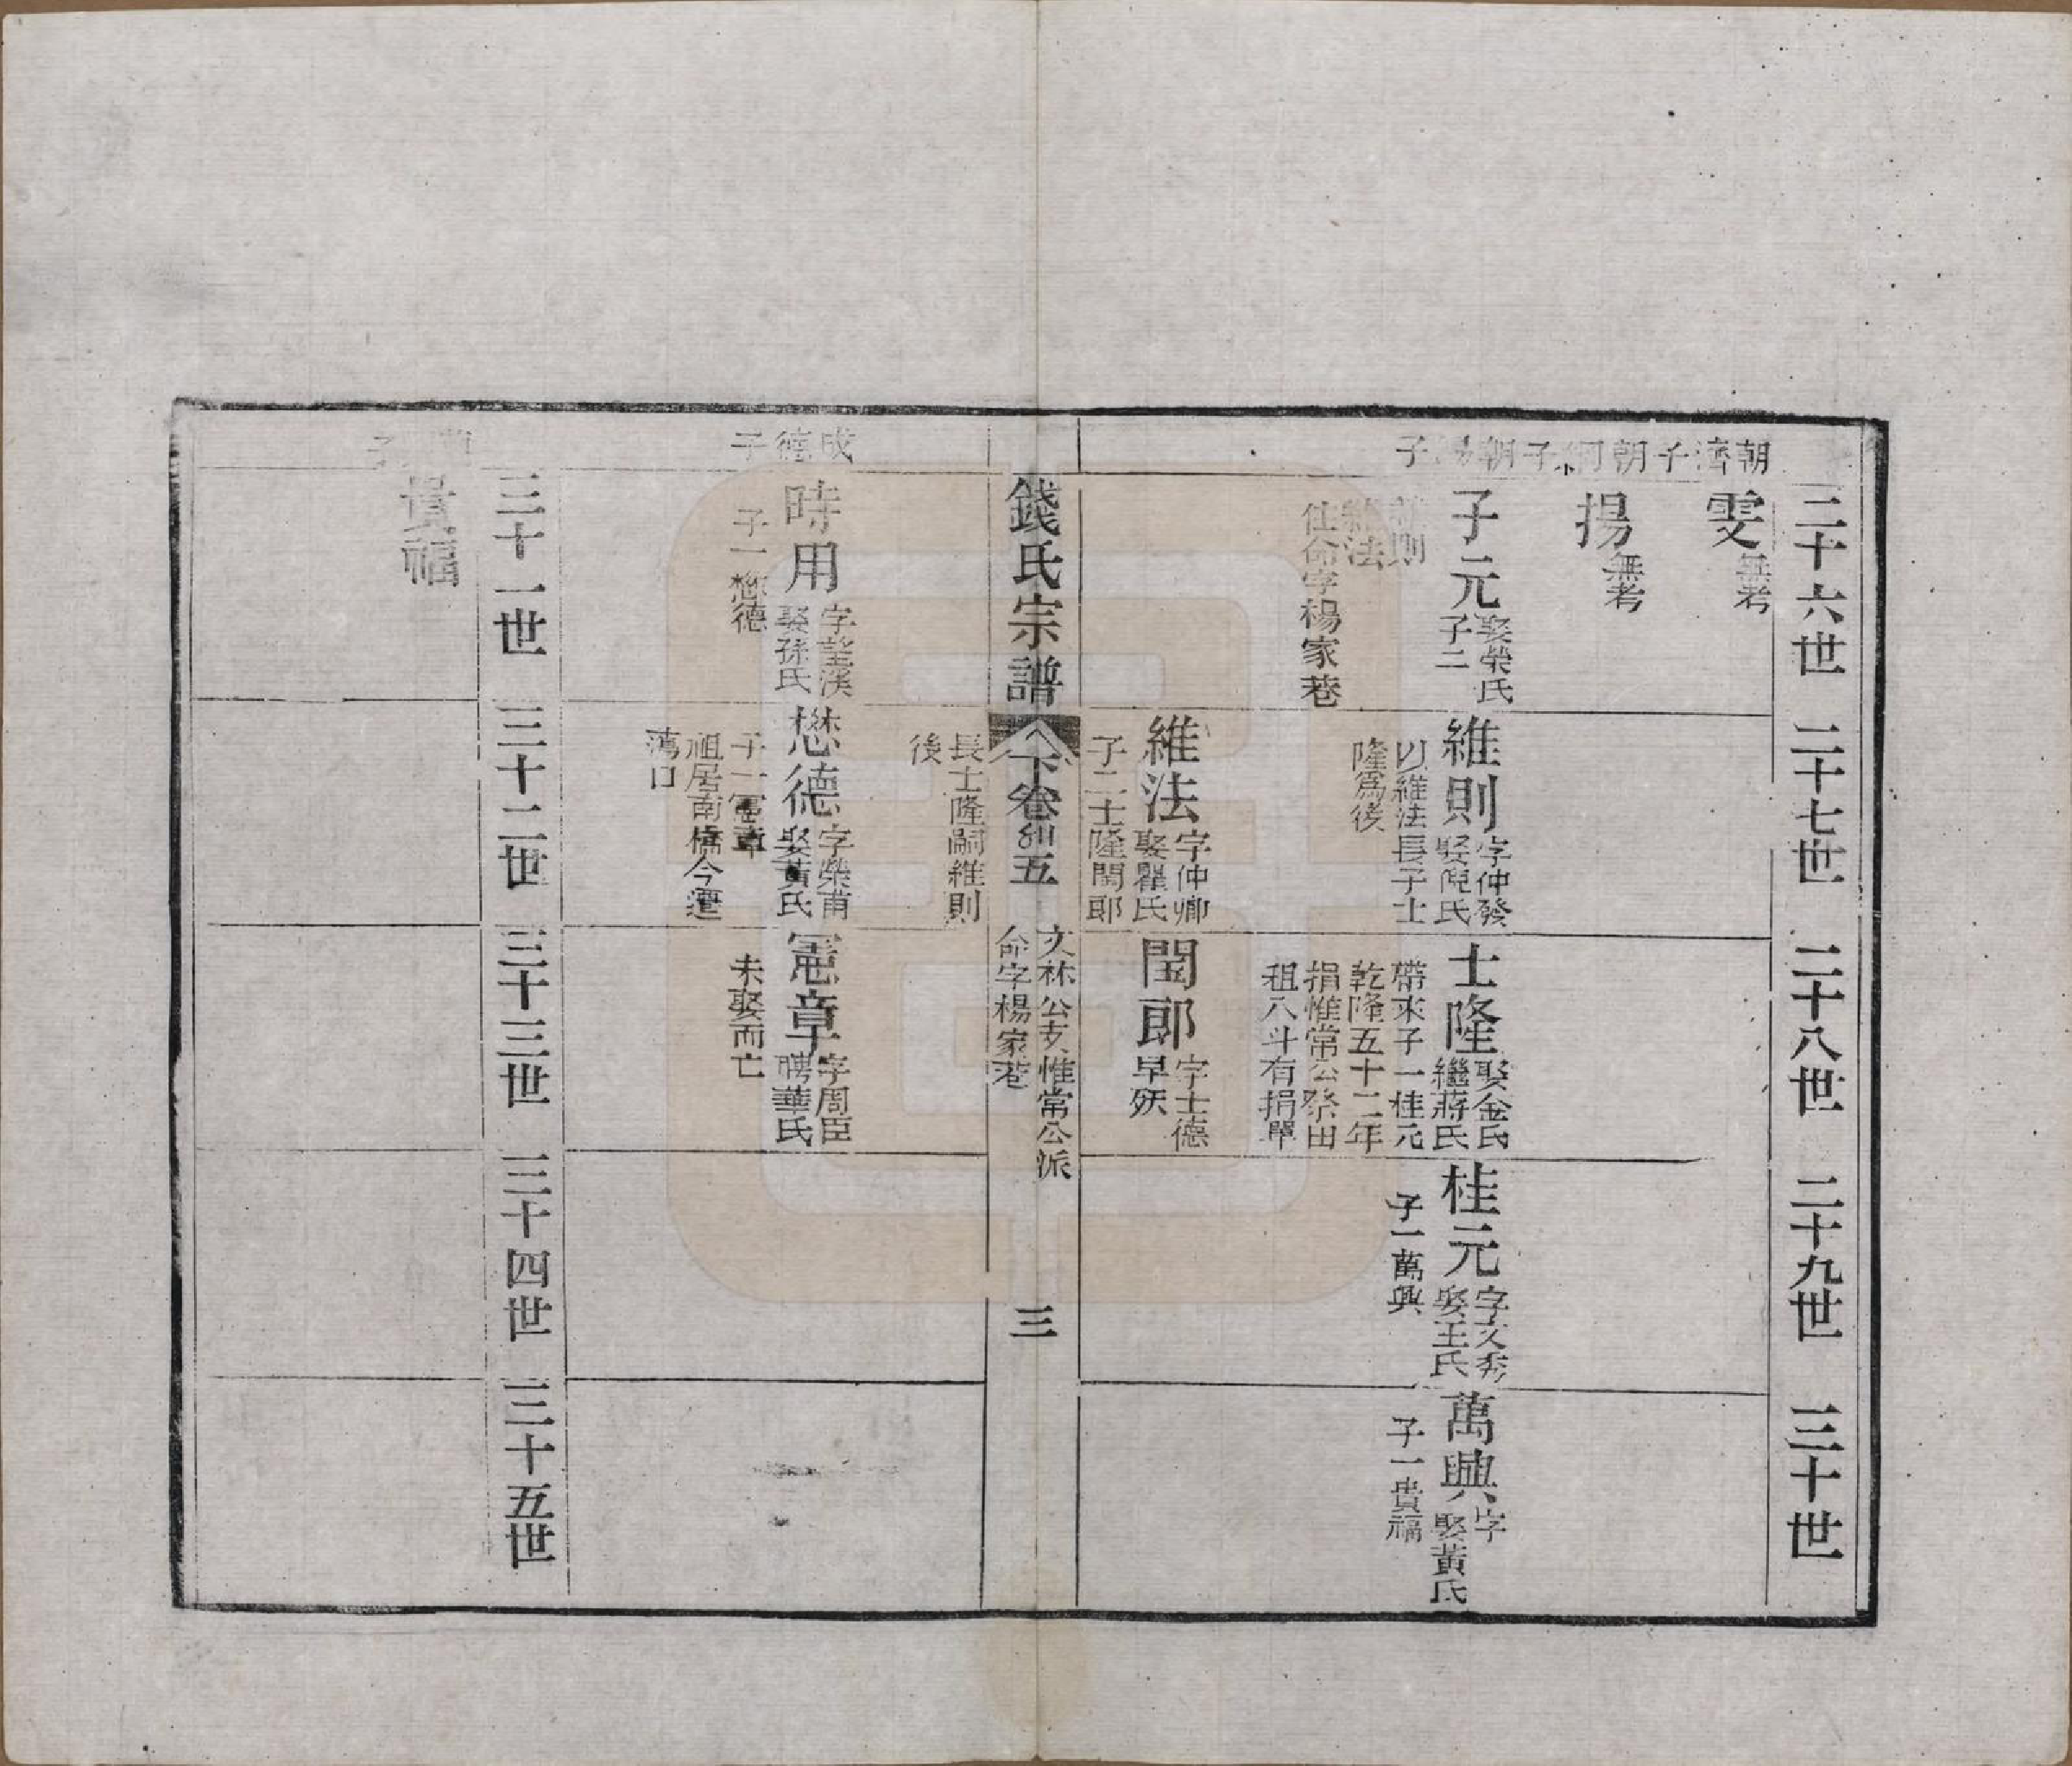 二十六世
二十七世
二十八世
二十九世
三十世
朝濟子
雯 無考
朝綱子
揚 無考
朝
子
子元 娶榮氏
子二
維則
維法
住命字楊家巷
維則 字仲發
娶倪氏
以維法長子士
隆為後
士隆 娶金氏
繼蔣氏
帶來子一桂元
乾隆五十二年
捐惟常公祭田
租八斗有捐單
桂元 字文秀
娶王氏
子一萬興
萬興 字
娶黃氏
子一貴福
維法 字仲卿
娶瞿氏
子二士隆閏郎
閏郎 字士德
早殀
錢氏宗譜
下卷
五
文林公支惟常公派
命字楊家巷
三
長士隆嗣維則
後
成德子
時用 字望溪
娶孫氏
子一懋德
懋德 字榮甫
娶黃氏
子一憲章
祖居南橋今遷
蕩口
憲章 字周臣
聘華氏
未娶而亡
三十一世
三十二世
三十三世
三十四世
三十五世
子
貴福